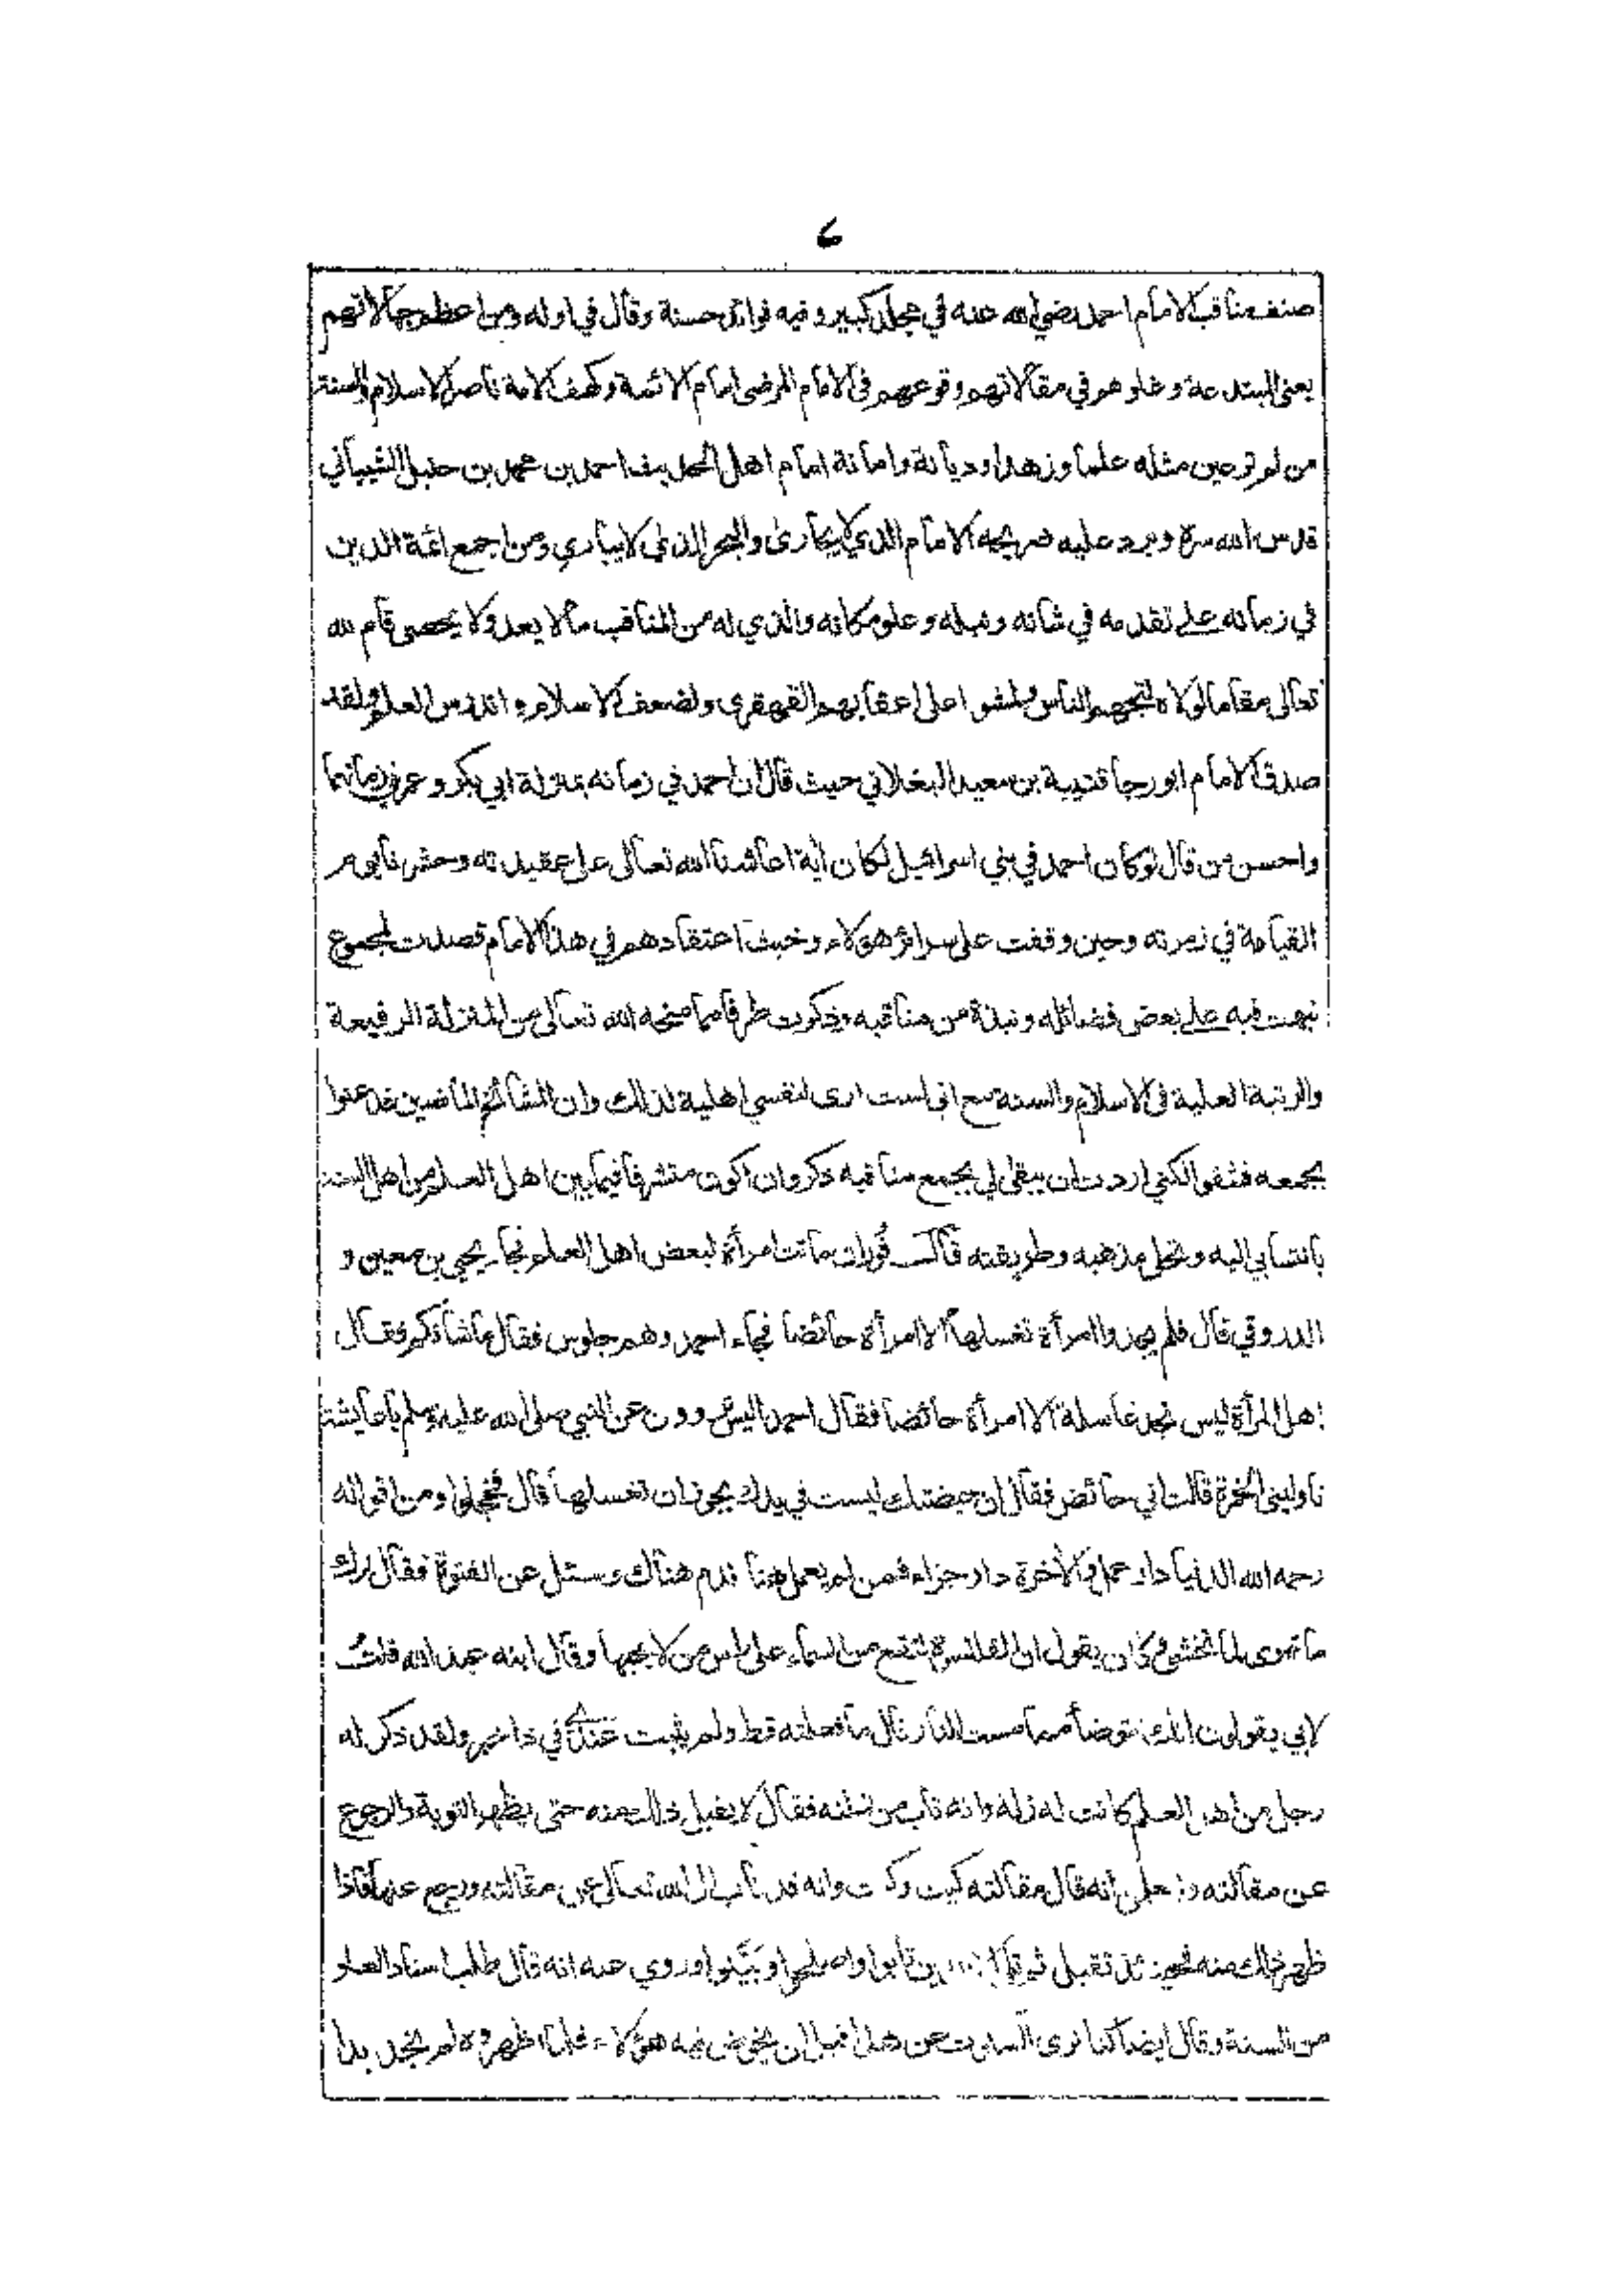 ٤
صنف مناقب الامام احمد رضي الله عنه في مجلد كبير وفيه فوائد حسنة وقال في اوله ومن اعظم جهالاتهم
يعني المبتدعة وغلوهم في مقالاتهم وقوعهم في الامام المرضى امام الائمة وكهف الامة ناصر الاسلام والسنة
من لم تر عين مثله علما وزهدا وديانة وامانة امام اهل الحديث احمد بن محمد بن حنبل الشيباني
قدس الله سره وبرد عليه ضريحه الامام الذي لا يجارى والبحر الذي لا يبارى ومن اجمع ائمة الدين
في زمانه على تقدمه في شانه ونبله وعلو مكانه والذي له من المناقب ما لا يعد ولا يحصى قام لله
تعالى مقاما لولاه لتجهم الناس ولمشوا على اعقابهم القهقرى ولضعف الاسلام واندرس العلم ولقد
صدق الامام ابو رجا قتيبة بن سعيد البغلاني حيث قال ان احمد في زمانه بمنزلة ابي بكر وعمر في زمانهما
واحسن من قال لو كان احمد في بني اسرائيل لكان آية اعاشنا الله تعالى على عقيدته وحشرنا يوم
القيامة في زمرته وحين وقفت على سرائر هؤلاء وخبث اعتقادهم في هذا الامام قصدت لمجموع
نبهت فيه على بعض فضائله ونبذة من مناقبه وذكرت طرفا مما منحه الله تعالى من المنزلة الرفيعة
والرتبة العلية في الاسلام والسنة مع اني لست ارى لنفسي اهلية لذلك وان المشائخ الماضين قد عنوا
بجمعه فشفوا لكني اردت ان يبقى لي بجمع مناقبه ذكر وان اكون متشرفا فيما بين اهل العلم من اهل السنة
بانتسابي اليه وتحلي مذهبه وطريقته قال فُوران ماتت امرأة لبعض اهل العلم فجاء يحيى بن معين و
الدورقي قال فلم يجدوا امرأة تغسلها الا امرأة حائضا فجاء احمد وهم جلوس فقال ما شأنكم فقال
اهل المرأة ليس نجد غاسلة الا امرأة حائضا فقال احمد اليس تروون عن النبي صلى الله عليه وسلم يا عايشة
ناوليني الخمرة قالت اني حائض فقال ان حيضتك ليست في يدك يجوز ان تغسلها قال فخجلوا ومن اقواله
رحمه الله الدنيا دار عمل والآخرة دار جزاء فمن لم يعمل هنا ندم هناك وسئل عن الفتوة فقال ترك
ما تهوى لما تخشى وكان يقول ان القلنسوة لتقع من السماء على راس من لا يحبها وقال ابنه عبد الله قلت
لابي يقولون انك توضأ مما مست النار قال ما فعلته قط ولم يثبت عندي في ذا خبر ولقد ذكر له
رجل من اهل العلم كانت له زلة وانه تاب من زلته فقال لا يقبل ذلك منه حتى يظهر التوبة والرجوع
عن مقالته وليعلمن انه قال مقالته كيت وكيت وانه قد تاب الى الله تعالى من مقالته ورجع عنها فاذا
ظهر ذلك منه فحينئذ تقبل ثم تلا الا الذين تابوا واصلحوا وبينوا وروي عنه انه قال طلب اسناد العلو
من السنة وقال ايضا كنا نرى السكوت عن هذا قبل ان يخوض فيه هؤلاء فلما اظهروه لم نجد بدا